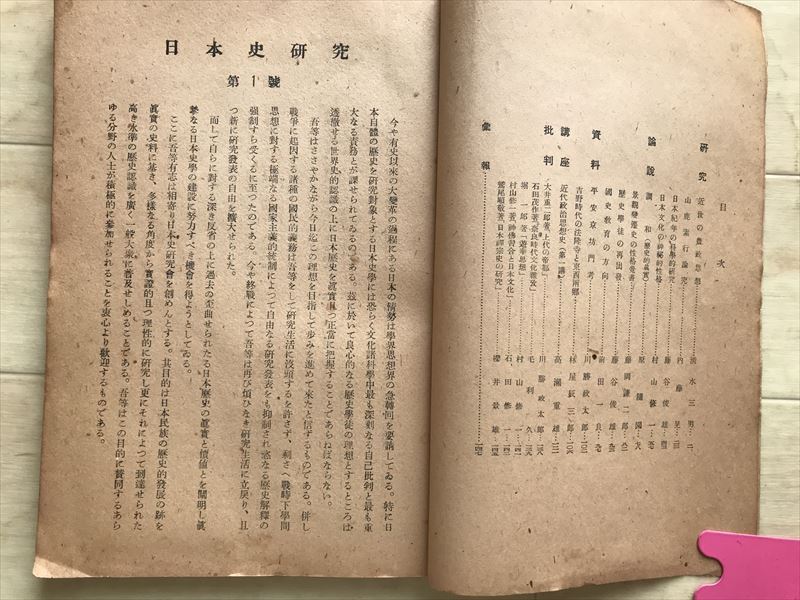 目次
研究
近世の農政思想 清水三男
山鹿素行論究 内藤晃
日本紀年の科學的研究 藤谷俊雄
日本文化の神秘的性格 村山修一
論說
調和(歷史的眞實)
景觀變遷史の性格覺書 藤岡謙二郎
歷史學徒の再出發 藤谷俊雄
國史教育の方向 前田一良
資料
平安京坊門考
吉野時代の法隆寺と東西兩鄕 村屋辰三郎
講座
近代政治思想史(第一講) 高瀨重雄
批判
大井重二郎著「上代の帝都」 川勝政太郎
石田茂作著「奈良時代文化雜攷」 毛利久
堀一郎著「遊幸思想」
村山修一著「神佛習合と日本文化」 石田
鷲尾順敬著「日本禪宗史の研究」 櫻井景雄
彙報
日本史硏究
第1號
今や有史以來の大變革の過程にある日本の情勢は學界思想界の急轉囘を要請してゐる。特に日
本自體の歷史を硏究對象とする日本史學には恐らく文化諸科學中最も深刻なる自己批判と最も重
大なる責務とが課せられてゐるのである。茲に於いて良心的なる歷史學徒の理想とするところは
透徹せる世界史的認識の上に日本歷史を眞實且つ正當に把握することであらねばならない。
吾等はささやかながら今日迄この理想を目指して步みを進めて來たと信ずるものである。併し
戰爭に起因する諸種の國民的義務は吾等をして硏究生活に沒頭するを許さず、剩さへ戰時下學問
思想に對する極端なる國家主義的統制によつて自由なる硏究發表をも抑制され恣なる歷史解釋の
強制すら受くるに至つたのである。今や終戰によつて吾等は再び煩ひなき硏究生活に立戾り、且
つ新に硏究發表の自由を擴大せられた。
而して自らに對する深き反省の上に過去の歪曲せられたる日本歷史の眞實と價値とを闡明し眞
摯なる日本史學の建設に努力すべき機會を得ようとしてゐる。
ここに吾等有志は相寄り日本史硏究會を創めんとする。其目的は日本民族の歷史的發展の跡を
眞實の史料に基き、多樣なる角度から實證的且つ理性的に硏究し更にそれによつて到達せられた
高き水準の歷史認識を廣く一般大衆に普及せしめることである。吾等はこの目的に贊同するあら
ゆる分野の人士が積極的に參加せられることを衷心より歡迎するものである。